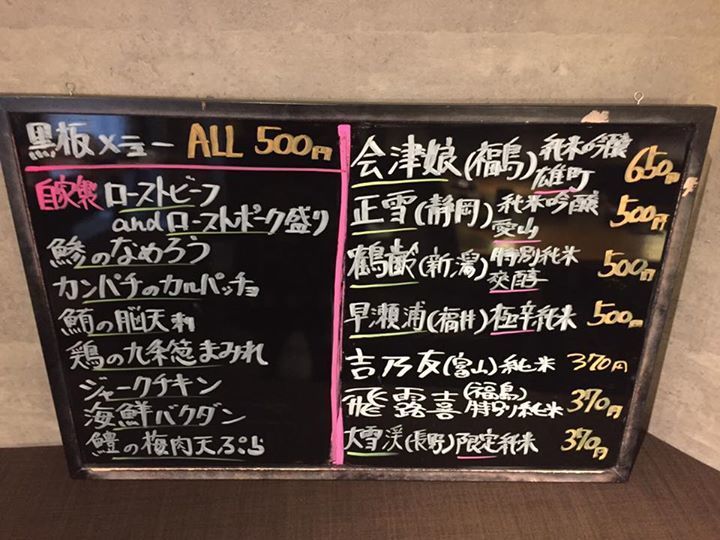 黒板メニュー ALL 500円
自家製 ローストビーフ
andローストポーク盛り
鯵のなめろう
カンパチのカルパッチョ
鮪の脳天刺
鶏の九条葱まみれ
ジャークチキン
海鮮バクダン
鱧の梅肉天ぷら
会津娘(福島)純米吟醸 雄町 650円
正雪(静岡)純米吟醸 愛山 500円
鶴齢(新潟)特別純米 爽醇 500円
早瀬浦(福井)極辛純米 500円
吉乃友(富山)純米 370円
飛露喜(福島)特別純米 370円
大雪渓(長野)限定純米 370円